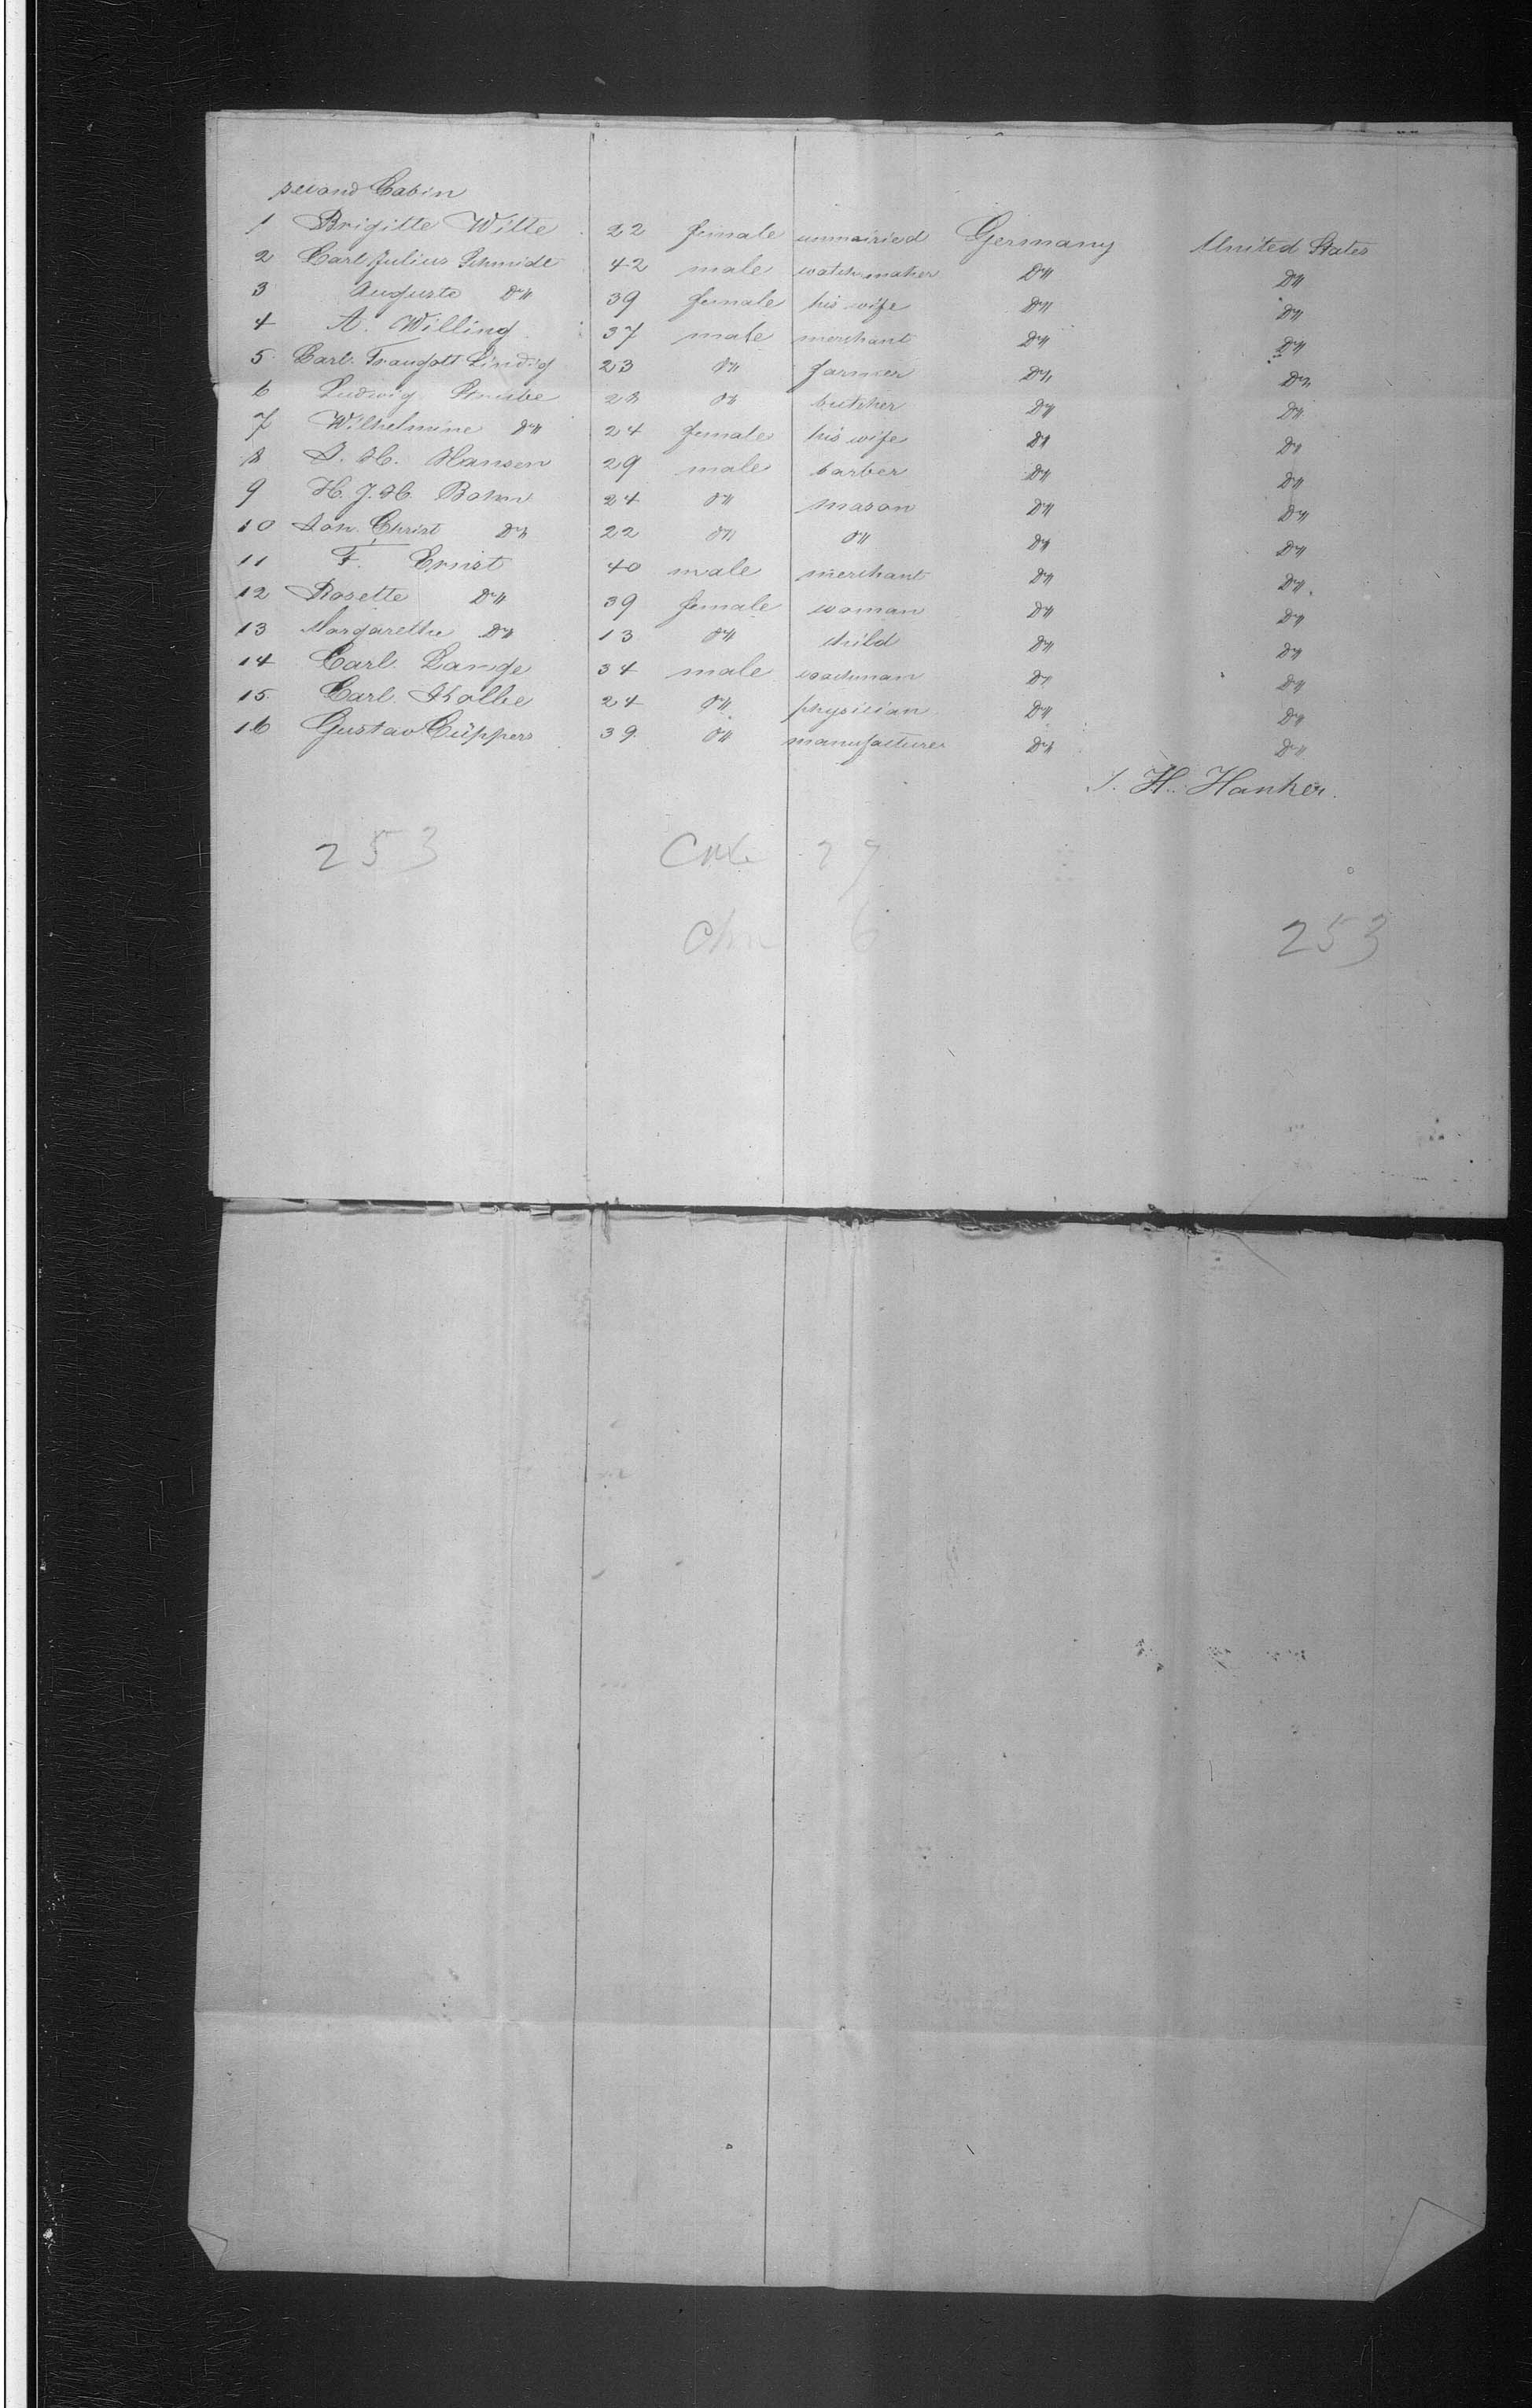 second Cabin
1 Brigitte Witte 22 female unmairied Germany United States
2 Carl Julius Schmidt 42 male watchmaker Do Do
3 Auguste Do 39 female his wife Do Do
4 A. Willing 37 male merchant Do Do
5 Carl Traugott Lindig 23 do farmer Do Do
6 Ludwig do butcher Do Do
7 Wilhelmine Do 24 female his wife Do Do
8 J. H. Hansen 29 male barber Do Do
9 H. J. H. 24 do mason Do Do
10 Joh. Christ Do 22 do do Do Do
11 F. Ernst 40 male merchant Do Do
12 Rosette Do 39 female woman Do Do
13 Margarethe Do 13 do child Do Do
14 Carl Lange 34 male coachman Do Do
15 Carl Kolbe 24 do physician Do Do
16 Gustav Cüppers 39 do manufacturer Do Do
H. Hanker.
253 27
6 253